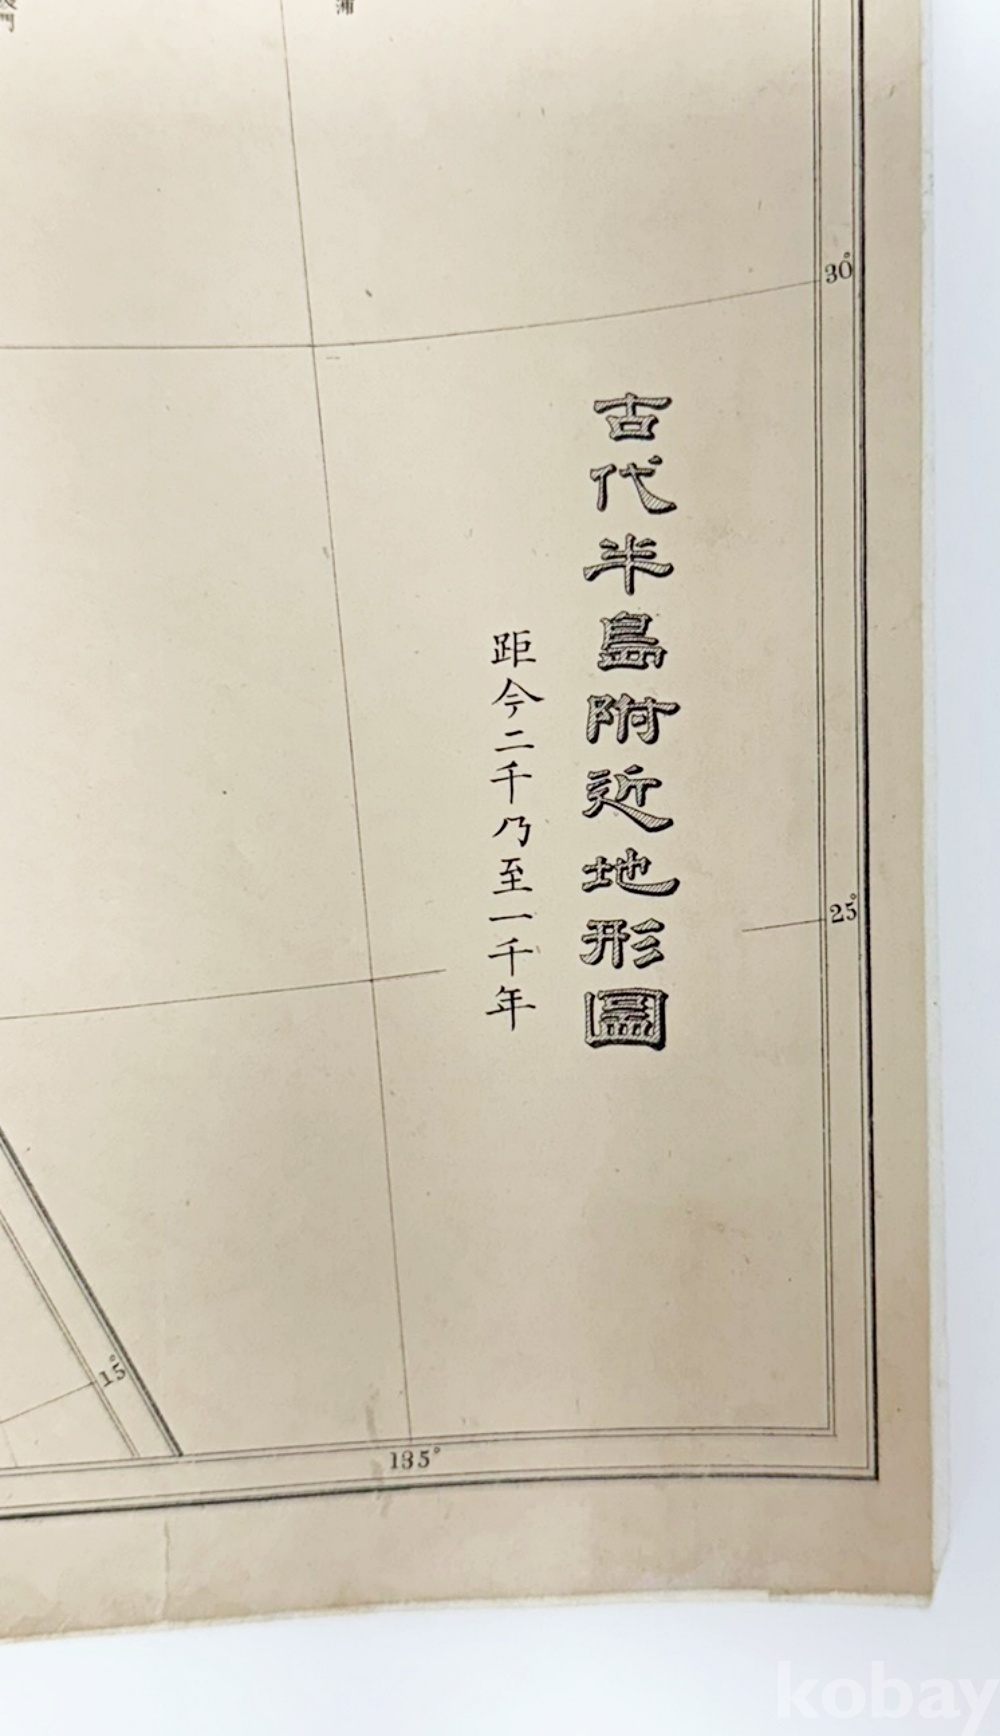 蒲
30°
古代半島附近地形圖
距今二千乃至一千年
25°
15°
135°
kobay